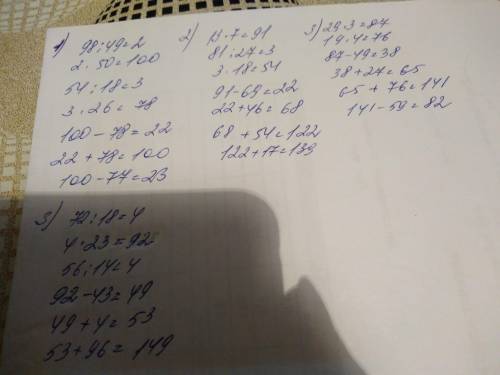 1) 98:49=2
2·50=100
54:18=3
3·26=78
100-78=22
22+78=100
100-77=23
2) 13·7=91
81:27=3
3·18=54
91-69=22
22+46=68
68+54=122
122+17=139
3) 29·3=87
19·4=76
87-49=38
38+27=65
65+76=141
141-59=82
3) 72:18=4
4·23=92
56:14=4
92-43=49
49+4=53
53+96=149